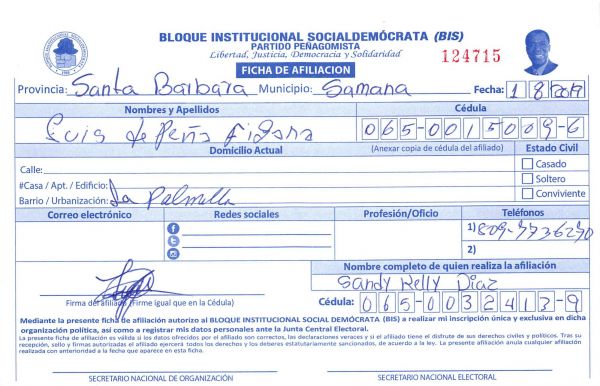 BLOQUE INSTITUCIONAL SOCIALDEMÓCRATA (BIS)
PARTIDO PEÑAGOMISTA
Libertad, Justicia, Democracia y Solidaridad
124715
FICHA DE AFILIACION
Provincia: Santa Barbara Municipio: Samana Fecha: 1 8 2019
Nombres y Apellidos Cédula
Luis de Peña 065-0015009-6
Domicilio Actual (Anexar copia de cédula del afiliado) Estado Civil
Calle: Casado
#Casa / Apt. / Edificio: Soltero
Barrio / Urbanización: La Palmilla Conviviente
Correo electrónico Redes sociales Profesión/Oficio Teléfonos
1) 809-7736290
2)
Nombre completo de quien realiza la afiliación
Sandy Kelly Diaz
Firma del afiliado (Firme igual que en la Cédula) Cédula: 065-0032413-9
Mediante la presente ficha de afiliación autorizo al BLOQUE INSTITUCIONAL SOCIAL DEMÓCRATA (BIS) a realizar mi inscripción única y exclusiva en dicha
organización política, así como a registrar mis datos personales ante la Junta Central Electoral.
La presente ficha de afiliación es válida si los datos ofrecidos por el afiliado son correctos, las declaraciones veraces y si el afiliado tiene el disfrute de sus derechos civiles y políticos. Tras su
recepción, sello y firmas autorizadas el afiliado ejercerá todos los derechos y los deberes estatutariamente sancionados, de acuerdo a la ley. La presente afiliación anula cualquier afiliación
realizada con anterioridad a la fecha que aparece en esta ficha.
SECRETARIO NACIONAL DE ORGANIZACIÓN SECRETARIO NACIONAL ELECTORAL